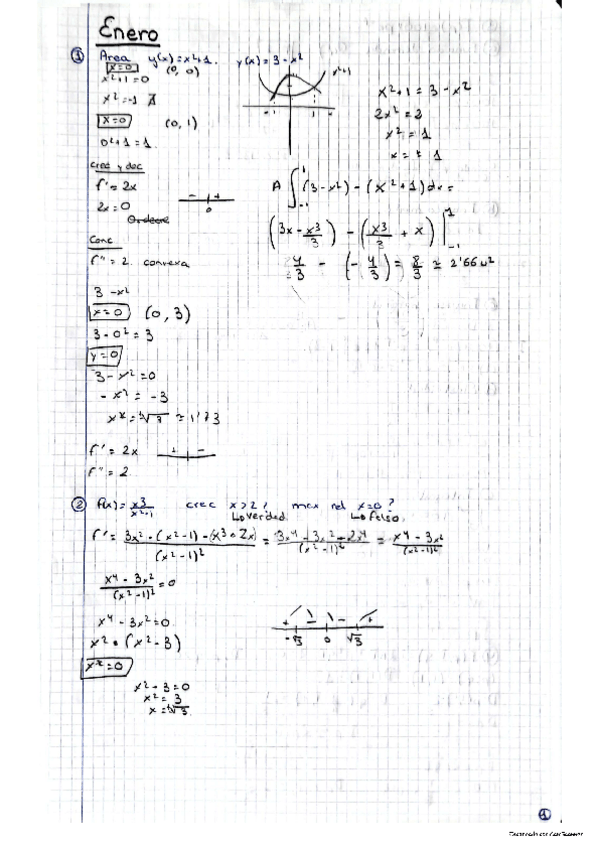 Enero
① Area y(x)=x²+1. y(x)=3-x²
x=0 (0,0)
x²+1=0
x²=-1 ∄
x=0 (0,1)
0²+1=1
x²+1
-1 1
x²+1 = 3-x²
2x²=2
x²=1
x=±1
Crec y dec
f'=2x
2x=0
- +
0
Conc
f''=2 convexa
A ∫ (3-x²)-(x²+1)dx=
(3x-x³/3) - (x³/3+x) |
4/3 - (-4/3) = 8/3 ≈ 2'66 u²
3-x²
x=0 (0,3)
3-0²=3
y=0
3-x²=0
-x²=-3
x=±√3 ≈ 1'73
f'=2x + -
f''=2
② f(x)=x³/x²-1 crec x>2? max rel x=0?
↳verdad ↳falso
f'= 3x²·(x²-1)-(x³·2x)/(x²-1)² = 3x⁴-3x²-2x⁴/(x²-1)² = x⁴-3x²/(x²-1)²
x⁴-3x²/(x²-1)²=0
x⁴-3x²=0
x²·(x²-3)
x=0
x²-3=0
x²=3
x=±√3
+ - - +
-√3 0 √3
1